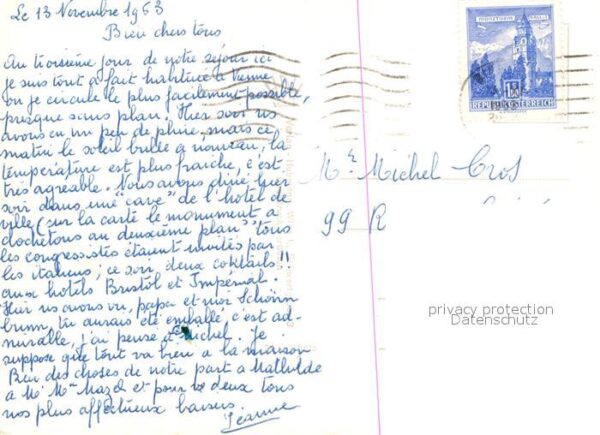 Le 13 Novembre 1963
Bien chers tous
Au troisième jour de notre séjour ici
je suis tout à fait habituée à Vienne
ou je circule le plus facilement possible,
presque sans plan. Hier soir ns
avons eu un peu de pluie, mais ce
matin le soleil brille à nouveau; la
température est plus fraîche, c'est
très agréable. Nous avons dîné hier
soir dans une "cave" de l'hôtel de
ville (sur la carte le monument à
clochetons au deuxième plan) tous
les congressistes étaient invités par
les italiens; ce soir, deux coktails!!
aux hotels Bristol et Impérial.
Hier ns avons vu, papa et moi Schönn
brunn, tu aurais été emballé, c'est ad-
mirable, j'ai pensé à Michel. Je
suppose que tout va bien à la maison
Bien des choses de notre part à Mathilde
à Mr Mme Mazel et pour vs deux tous
nos plus affectueux baisers.
Jeanne
REPUBLIK ÖSTERREICH
Mr Michel Cros
99 R
privacy protection
Datenschutz